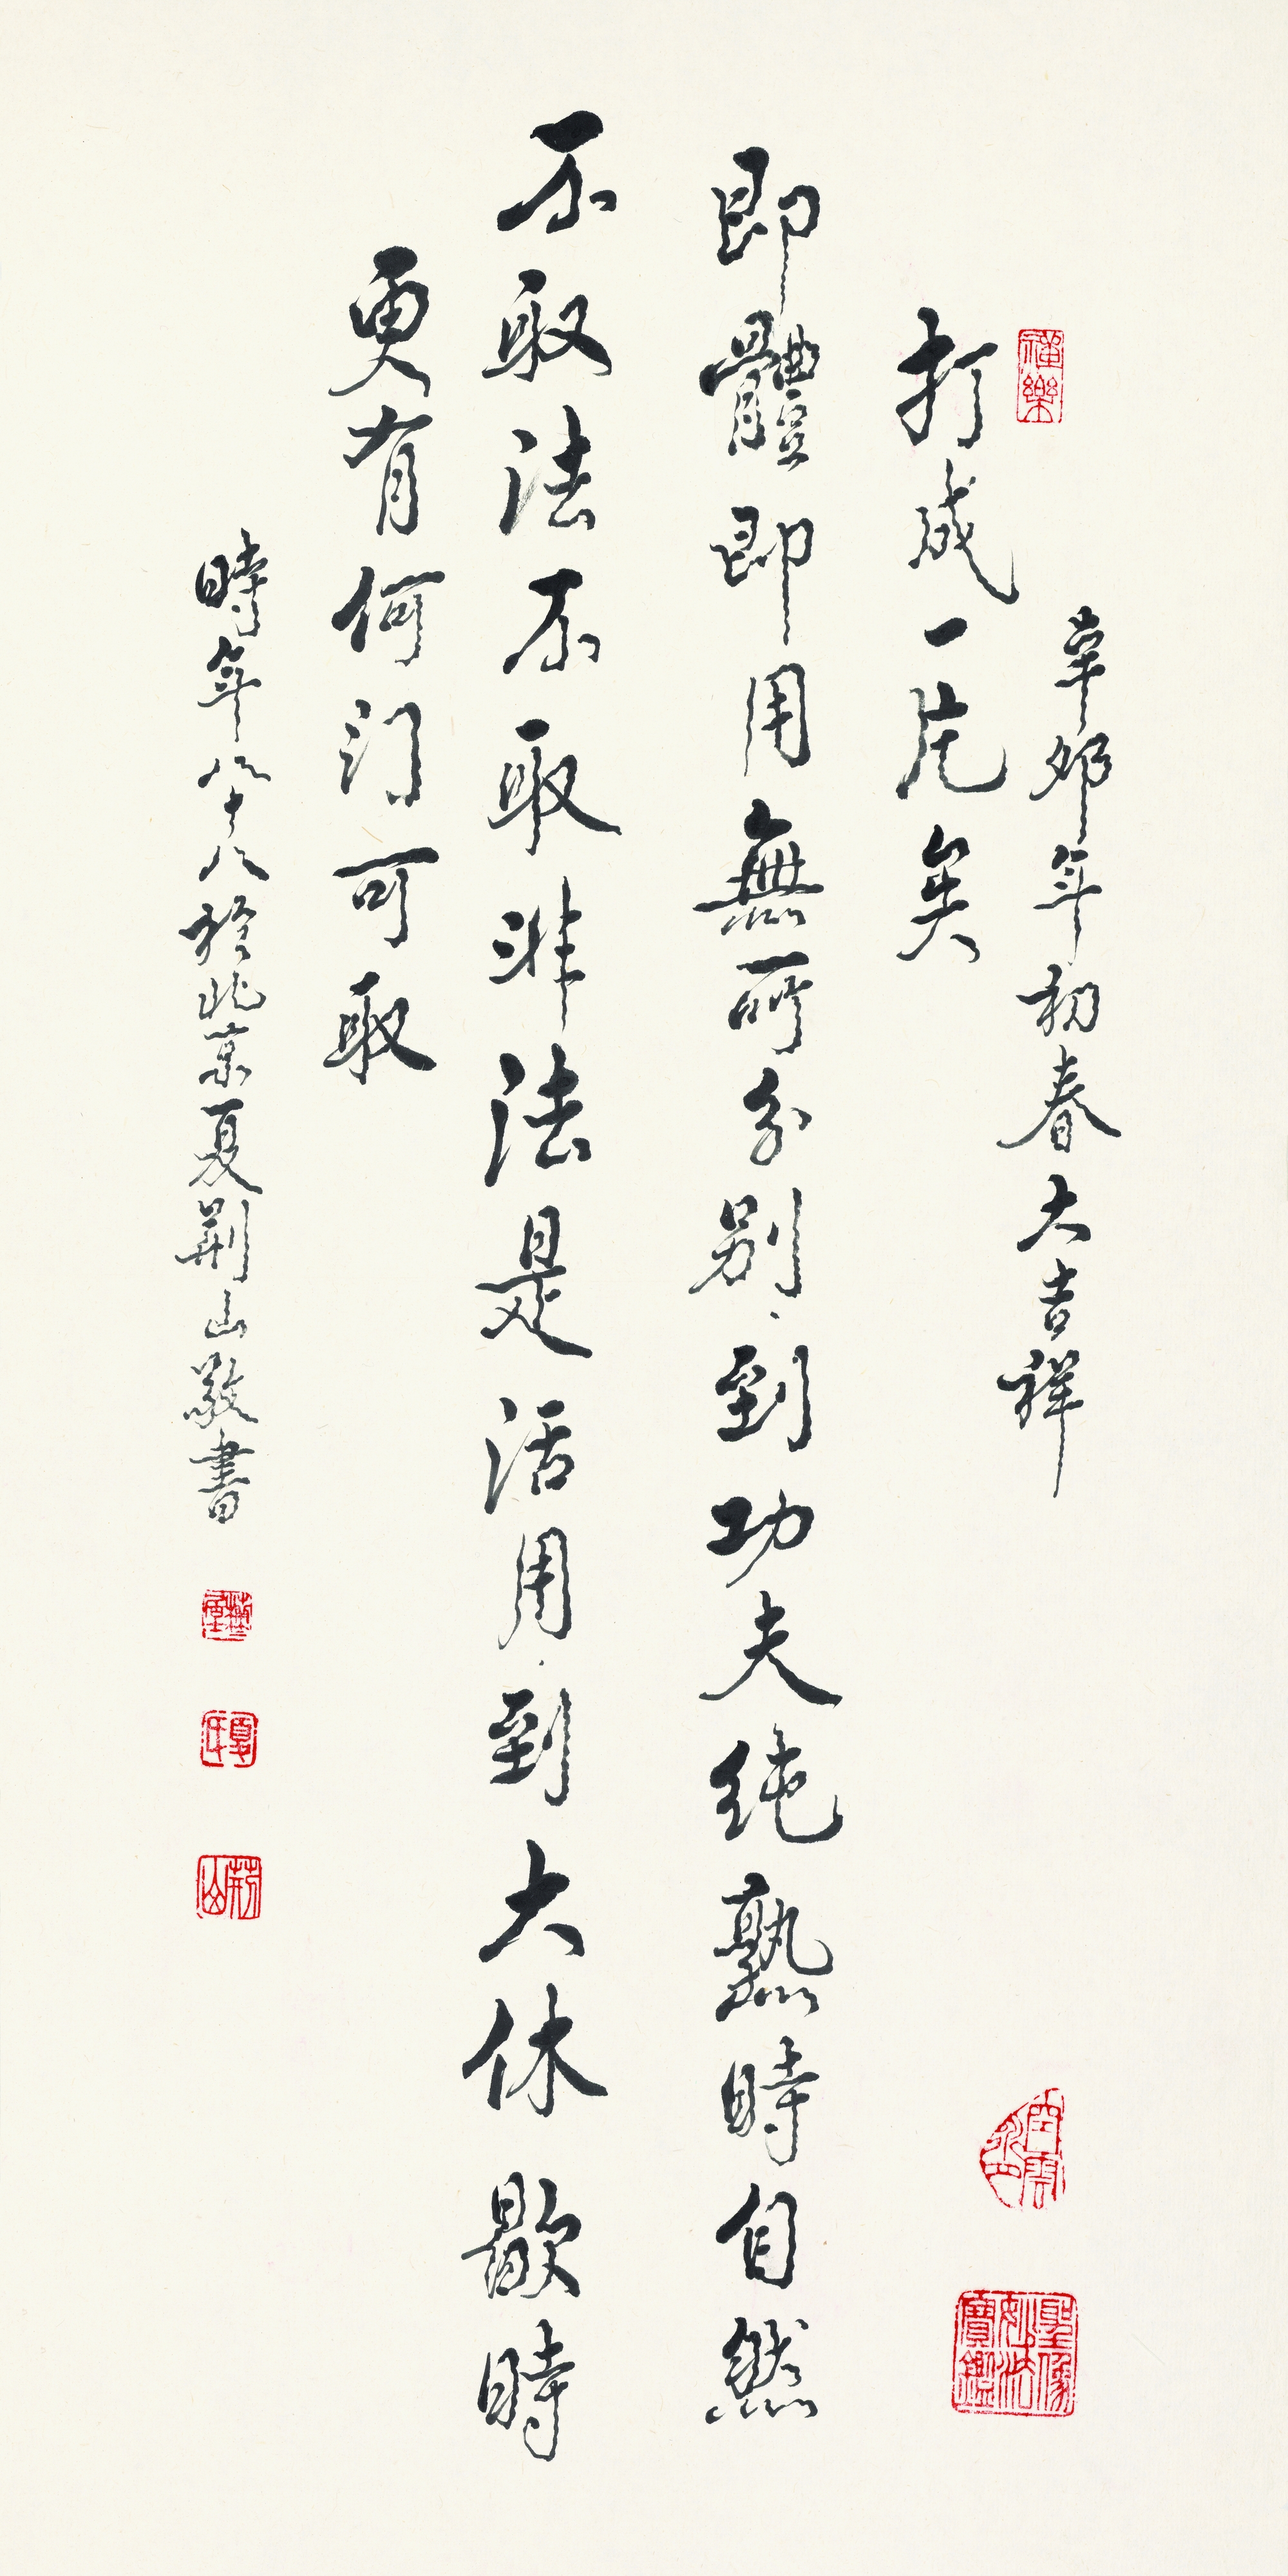 即體即用無可分別到功夫純熟時自然
打成一片矣
辛卯年初春大吉祥
不取法不取非法是活用到大休歇時
更有何門可取
時年八十八於北京夏荊山敬書
福樂
夏氏
荊山
聖像妙法寶鑑